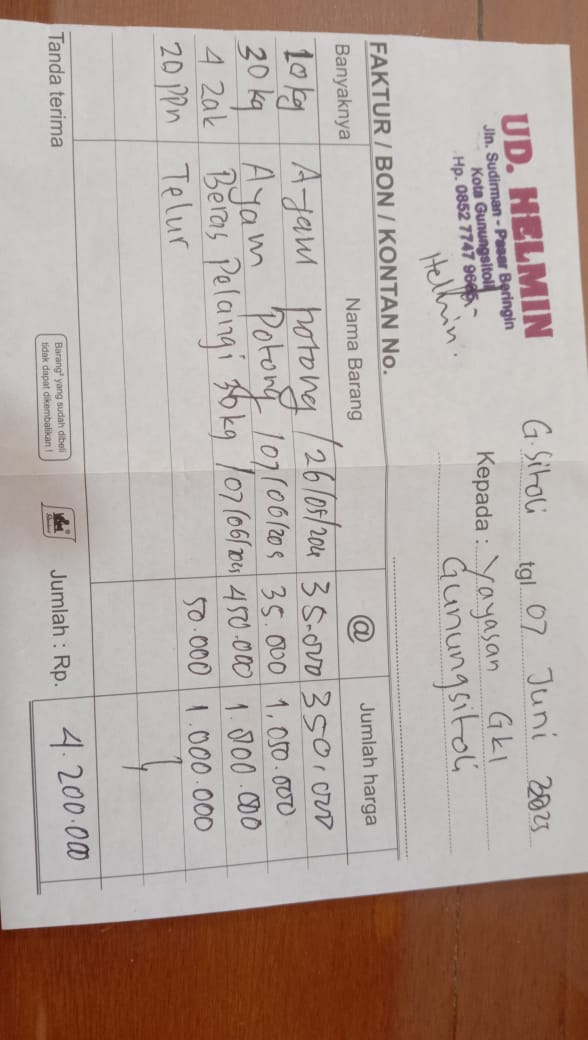 UD. HELMIN
Jln. Sudirman - Pasar Beringin
Kota Gunungsitoli
Hp. 0852 7747 9665
Helmin.
G. Sitoli tgl 07 Juni 2025
Kepada : Yayasan GKI
Gunungsitoli
FAKTUR / BON / KONTAN No.
Banyaknya Nama Barang @ Jumlah harga
10 kg Ayam potong / 26/05/204 35.000 350.000
30 kg Ayam Potong 107/06/205 35.000 1,050.000
4 Zak Beras Pelangi 30kg 450.000 1.800.000
20 ppn Telur 50.000 1.000.000
Tanda terima
Barang² yang sudah dibeli
tidak dapat dikembalikan !
Jumlah : Rp. 4.200.000